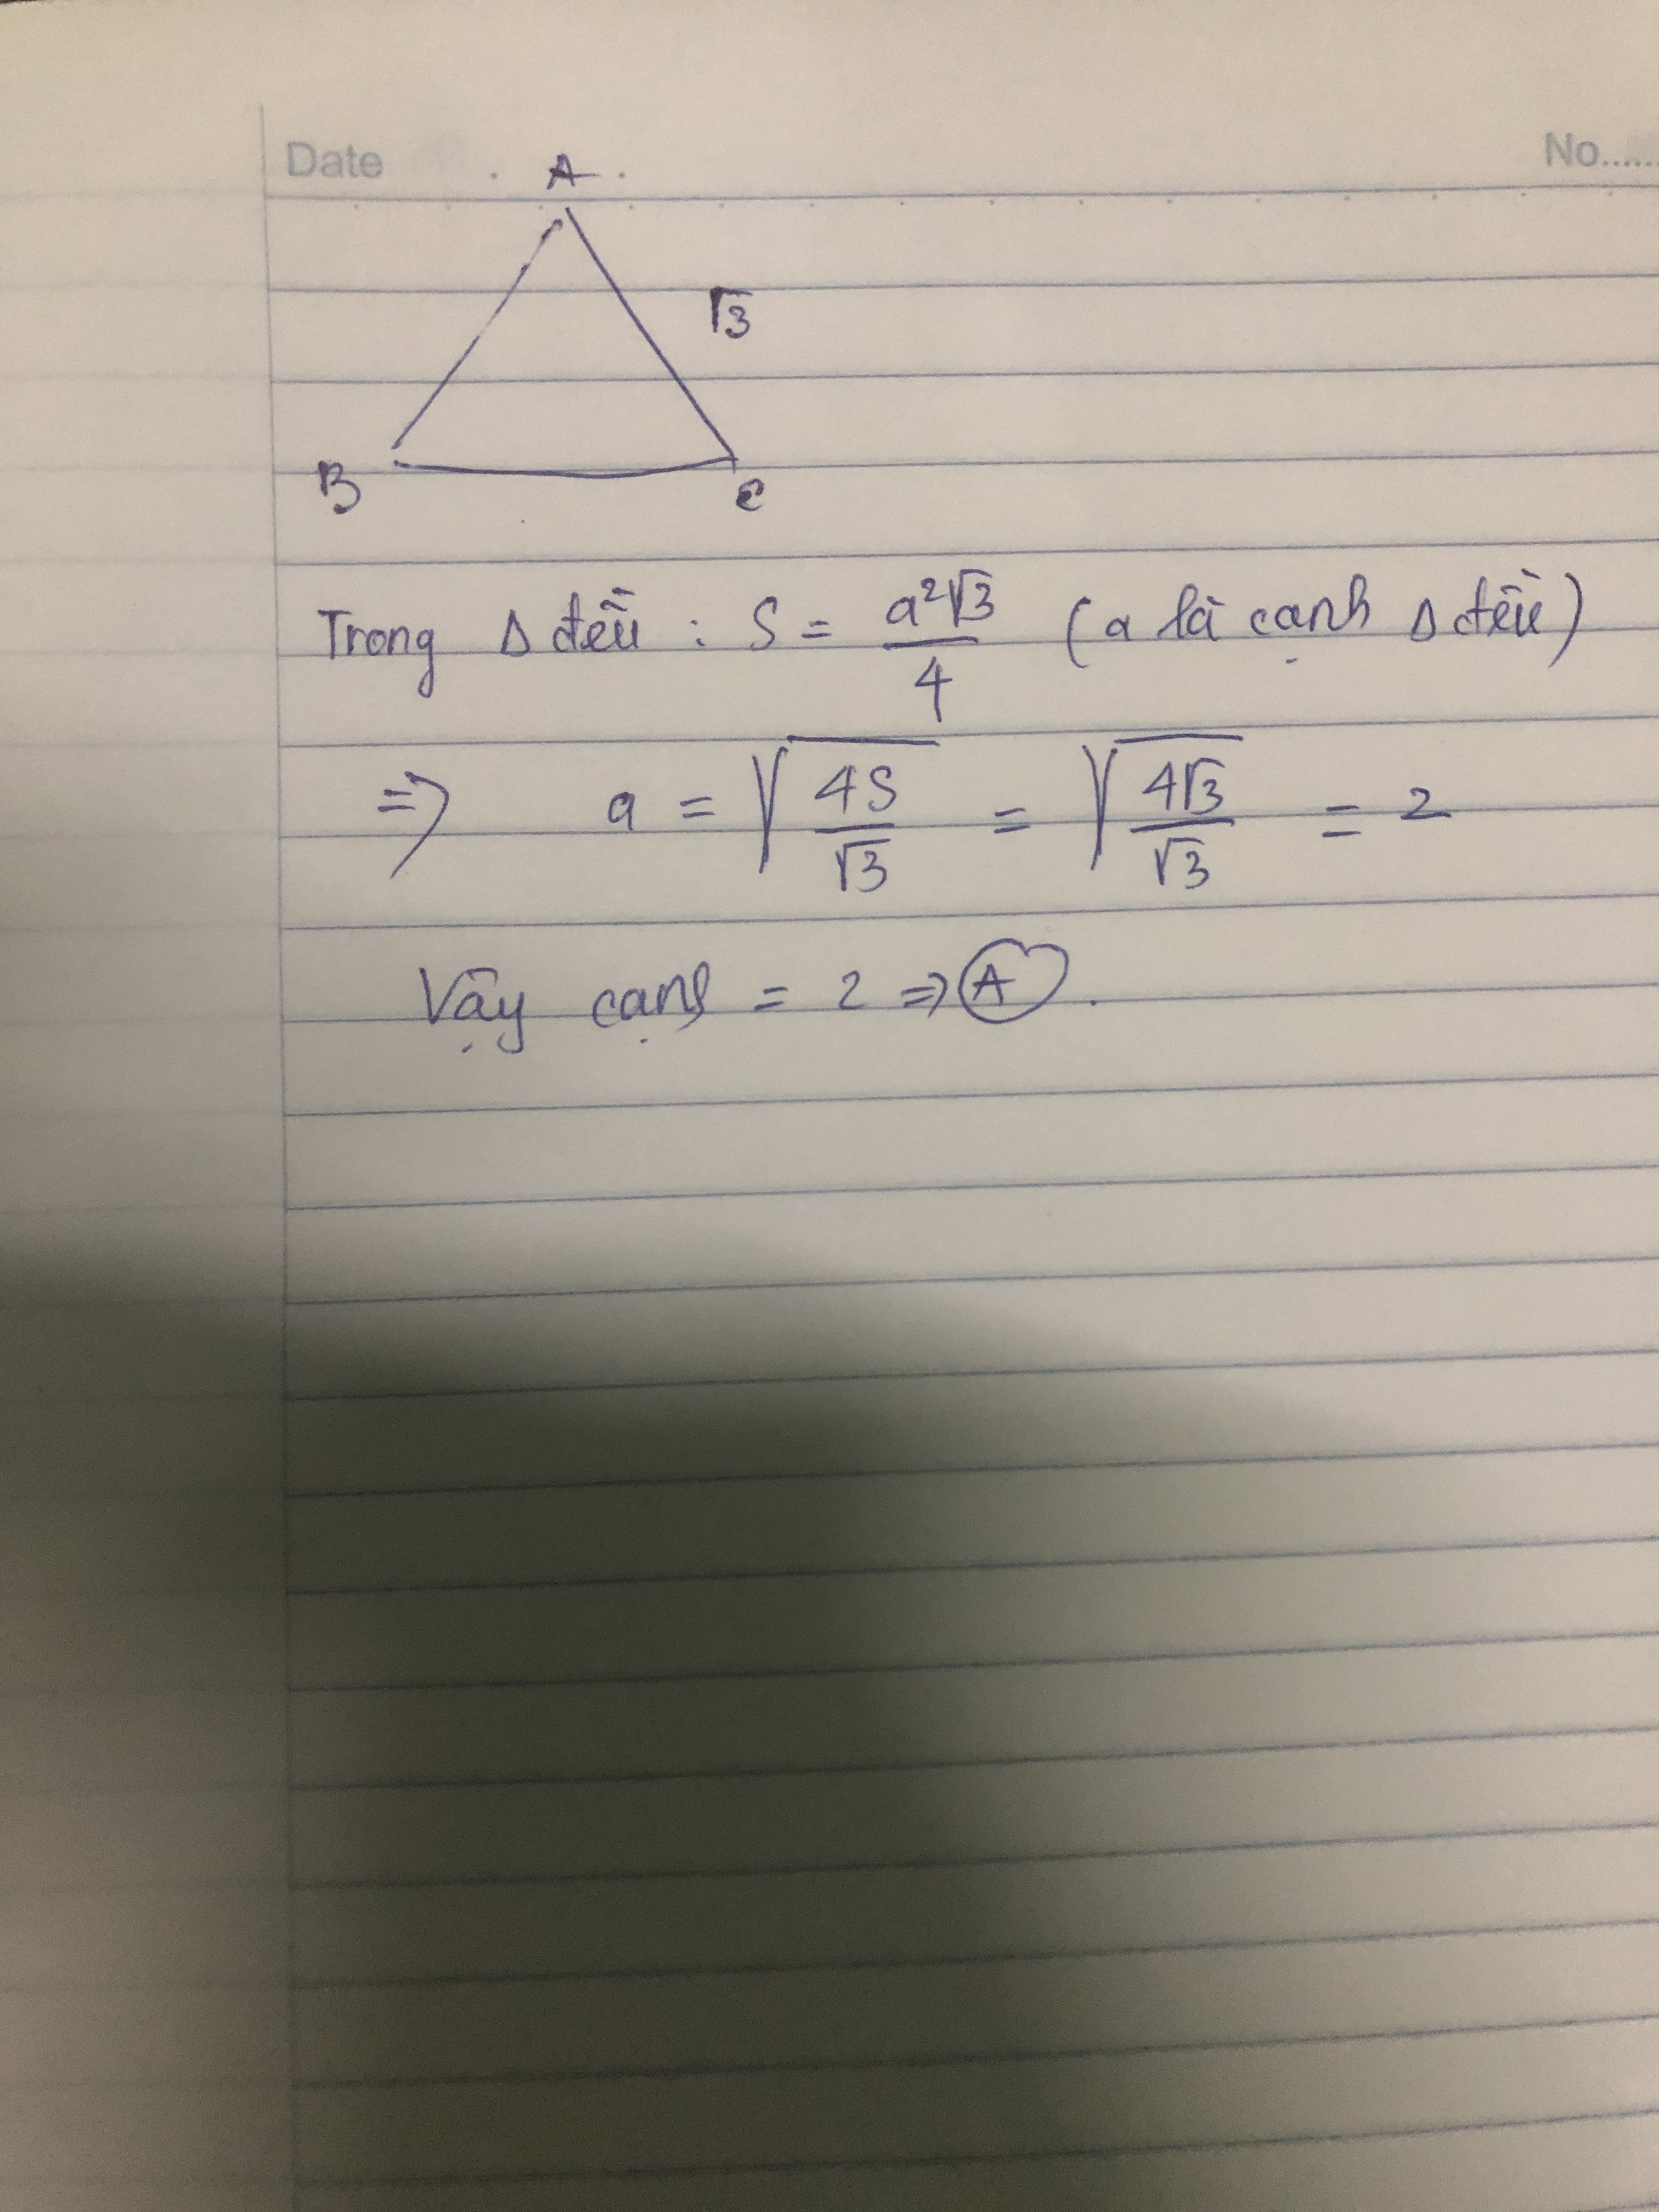 Date No......
A
√3
B C
Trong Δ đều : S = a²√3/4 (a là cạnh Δ đều)
=> a = √(4S/√3) = √(4√3/√3) = 2
Vậy cạnh = 2 => A.